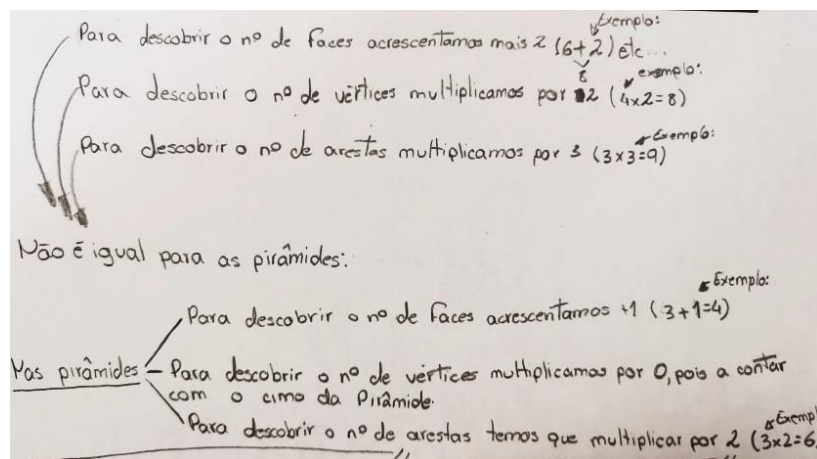 Exemplo:
Para descobrir o nº de faces acrescentamos mais 2 (6+2) etc...
8
exemplo:
Para descobrir o nº de vértices multiplicamos por 2 (4x2=8)
Exemplo:
Para descobrir o nº de arestas multiplicamos por 3 (3x3=9)
Não é igual para as pirâmides:
Exemplo:
Para descobrir o nº de faces acrescentamos +1 (3+1=4)
Nas pirâmides
Para descobrir o nº de vértices multiplicamos por 0, pois a contar
com o cimo da Pirâmide.
Exempl
Para descobrir o nº de arestas temos que multiplicar por 2 (3x2=6